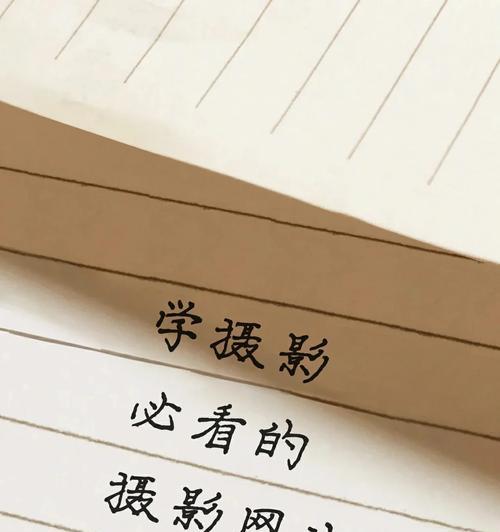 学摄影
必看的
摄影网